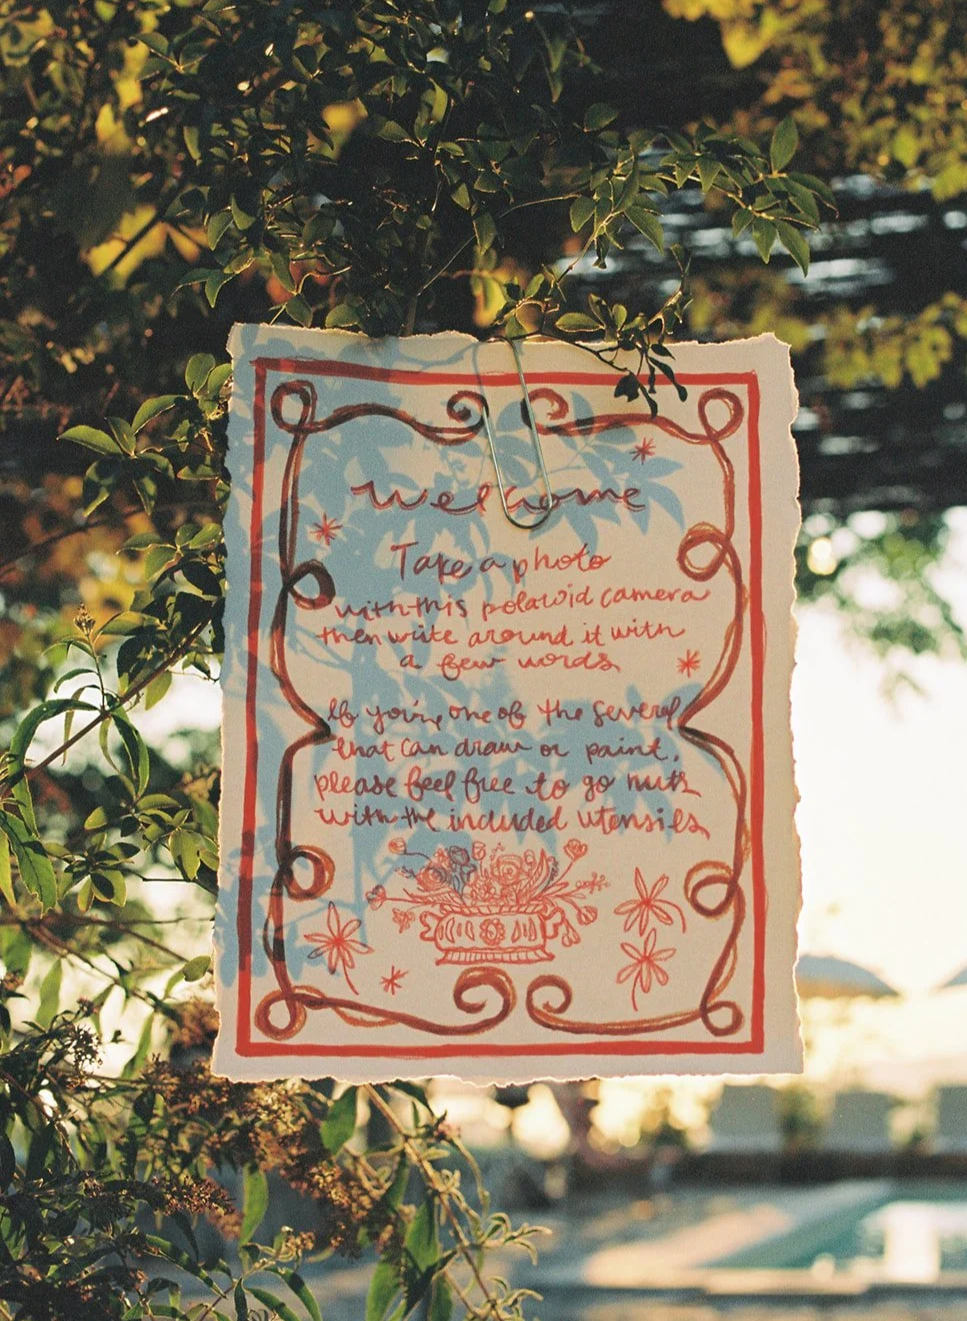 welcome
Take a photo
with this polaroid camera
then write around it with
a few words
If you're one of the several
that can draw or paint,
please feel free to go nuts
with the included utensils